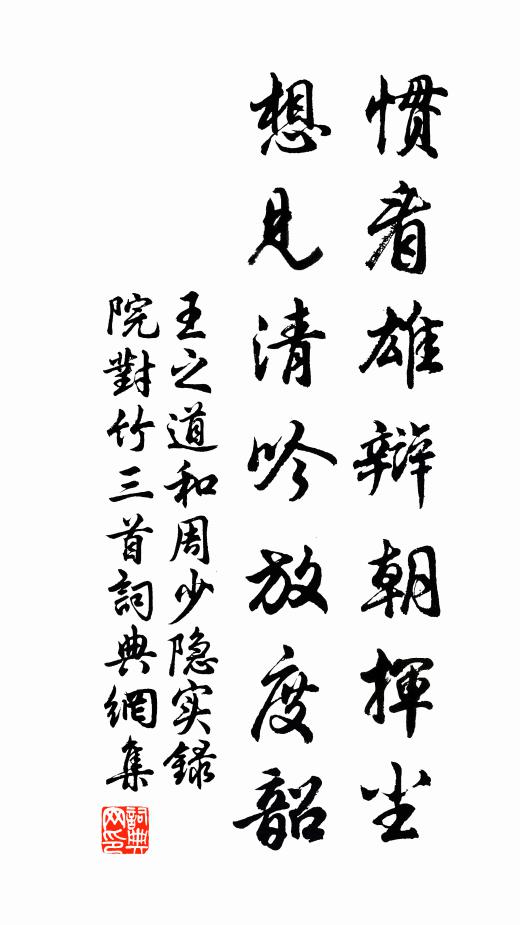 惯看雄辩朝揮尘
想見清吟放度韶
王之道和周少隐实録
院對竹三首詞典網集
詞典网印